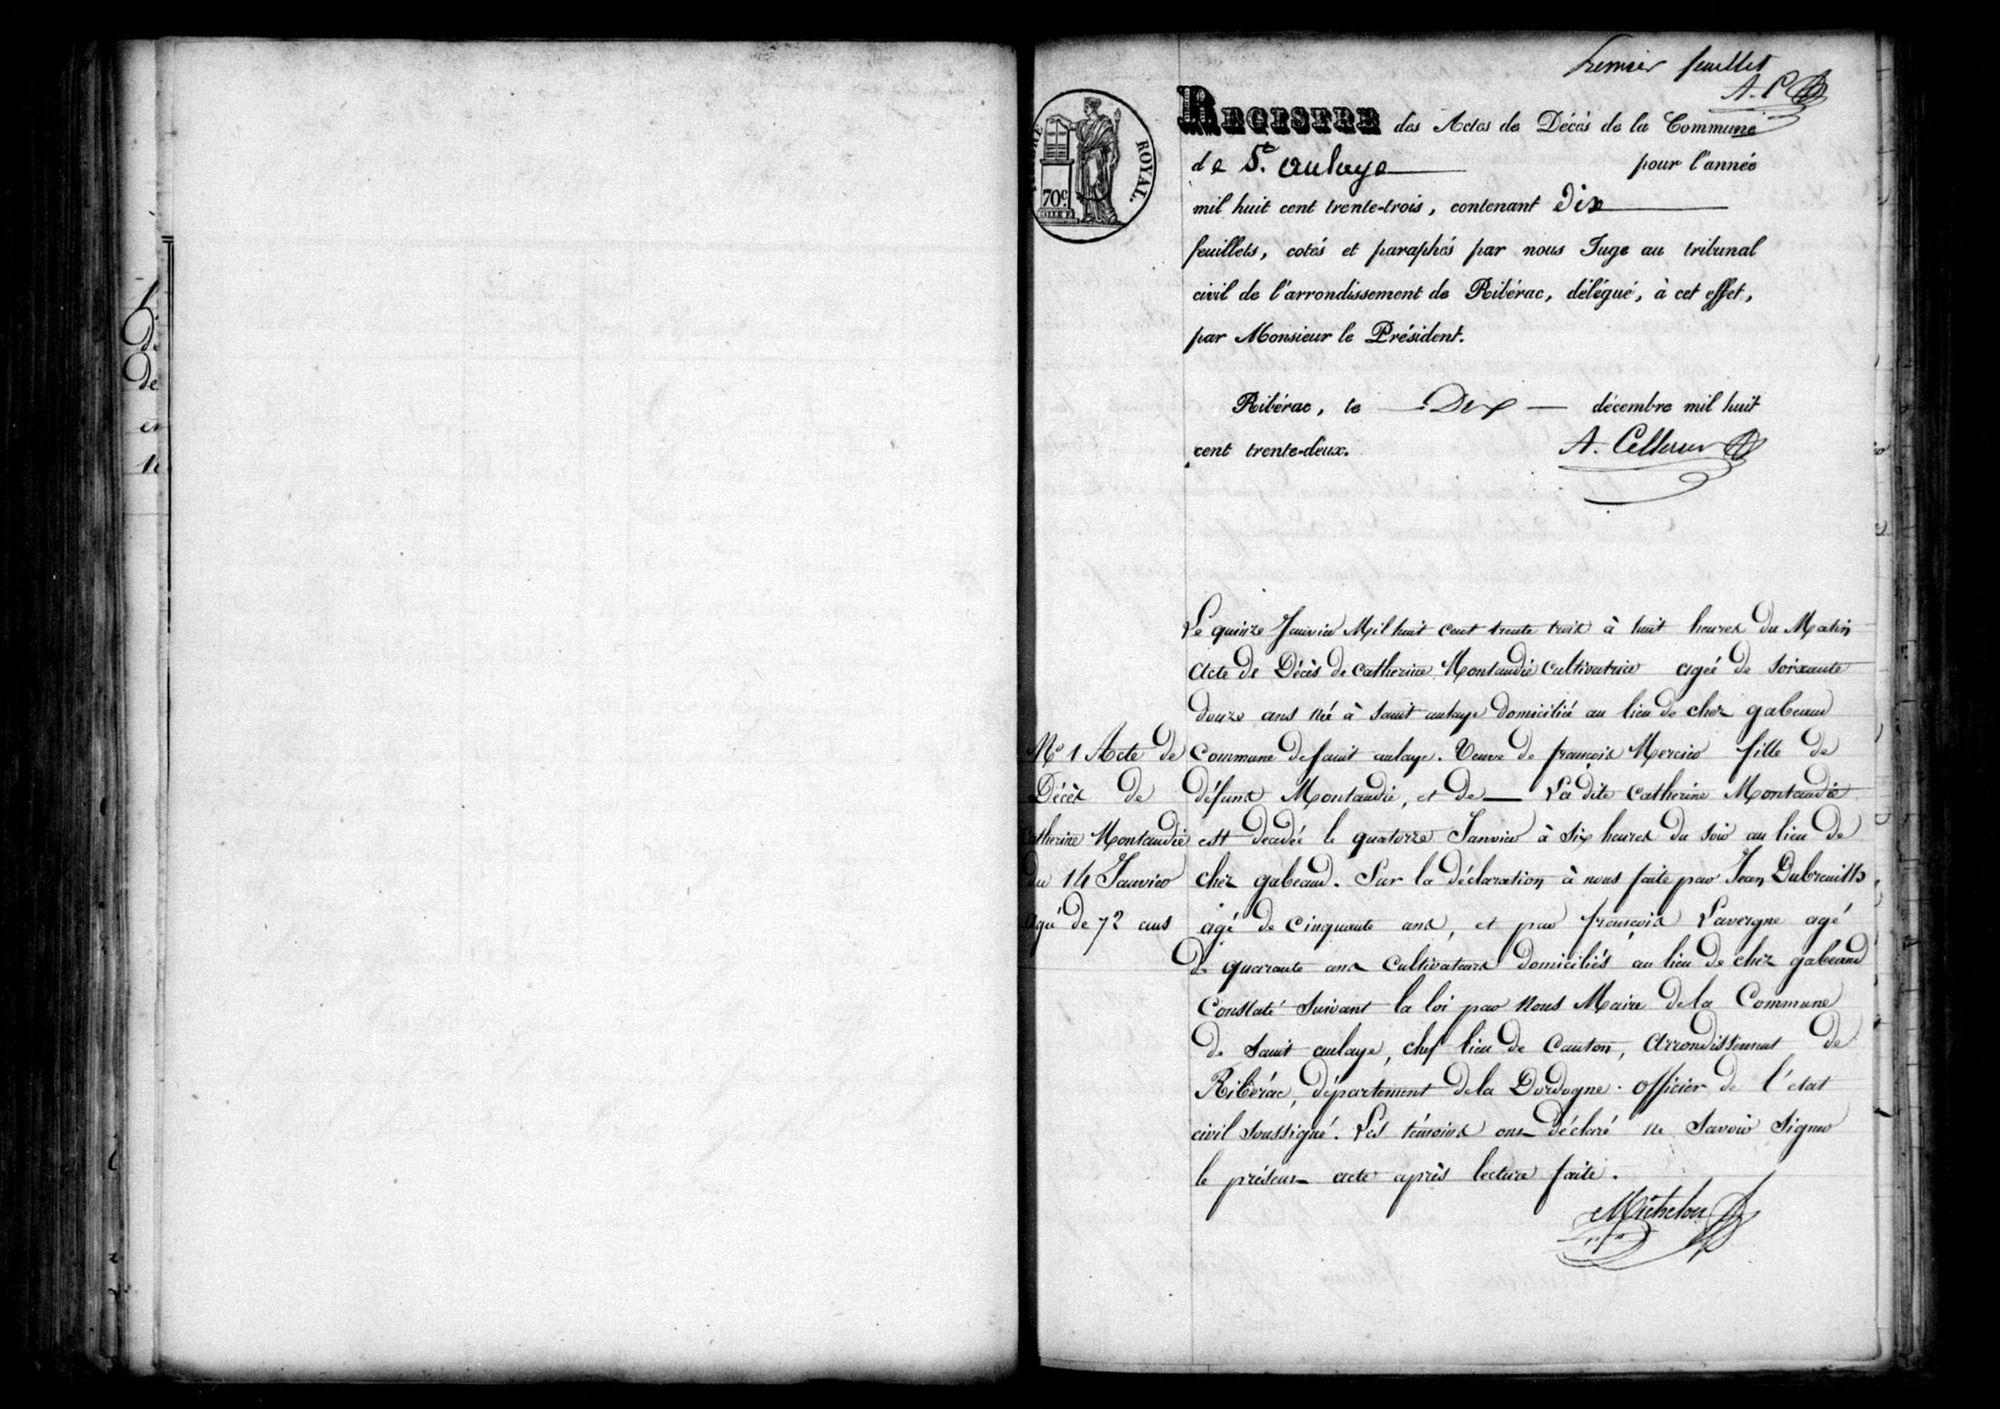 Premier feuillet
A. C
TIMBRE ROYAL.
70c.
REGISTRE des Actes de Décès de la Commune
de St. aulaye pour l'année
mil huit cent trente-trois, contenant Dix
feuillets, cotés et paraphés par nous Juge au tribunal
civil de l'arrondissement de Ribérac, délégué, à cet effet,
par Monsieur le Président.
Ribérac, le Dix décembre mil huit
cent trente-deux.
Le quinze Janvier Mil huit cent trente trois à huit heures du Matin
acte de Décès de catherine Montaudié cultivatrice agée de soixante
douze ans née à saint aulaye domiciliée au lieu de chez gabeaud
commune de saint aulaye. Veuve de françois Mercier fille de
défunt Montaudié, et de — La dite catherine Montaudié
est decedée le quatorze Janvier à six heures du soir au lieu de
chez gabeaud. Sur la déclaration à nous faite par Jean Dubreuilh
agé de cinquante ans, et par françois Lavergne agé
de quarante ans cultivateurs domiciliés au lieu de chez gabeaud
Constaté suivant la loi par nous Maire de la Commune
de saint aulaye, chef lieu de canton, arrondissement de
Ribérac, département de la Dordogne. officier de l'état
civil soussigné. Les témoins ont déclaré ne savoir signer
le présent acte après lecture faite.
No 1 Acte de
Décès de
catherine Montaudié
du 14 Janvier
agée de 72 ans